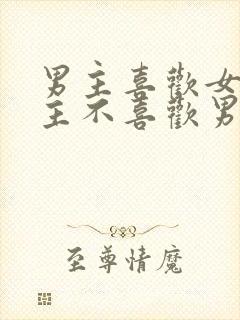 男主喜歡女
主不喜歡男
至尊情魔